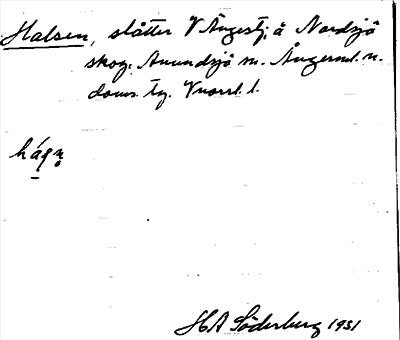 Halsen, slåtter V Ångestj. å Nordsjö
skog. Anundsjö sn. Ångerml. n.
doms. tg. Vnorrl. l.
HA Söderberg 1931